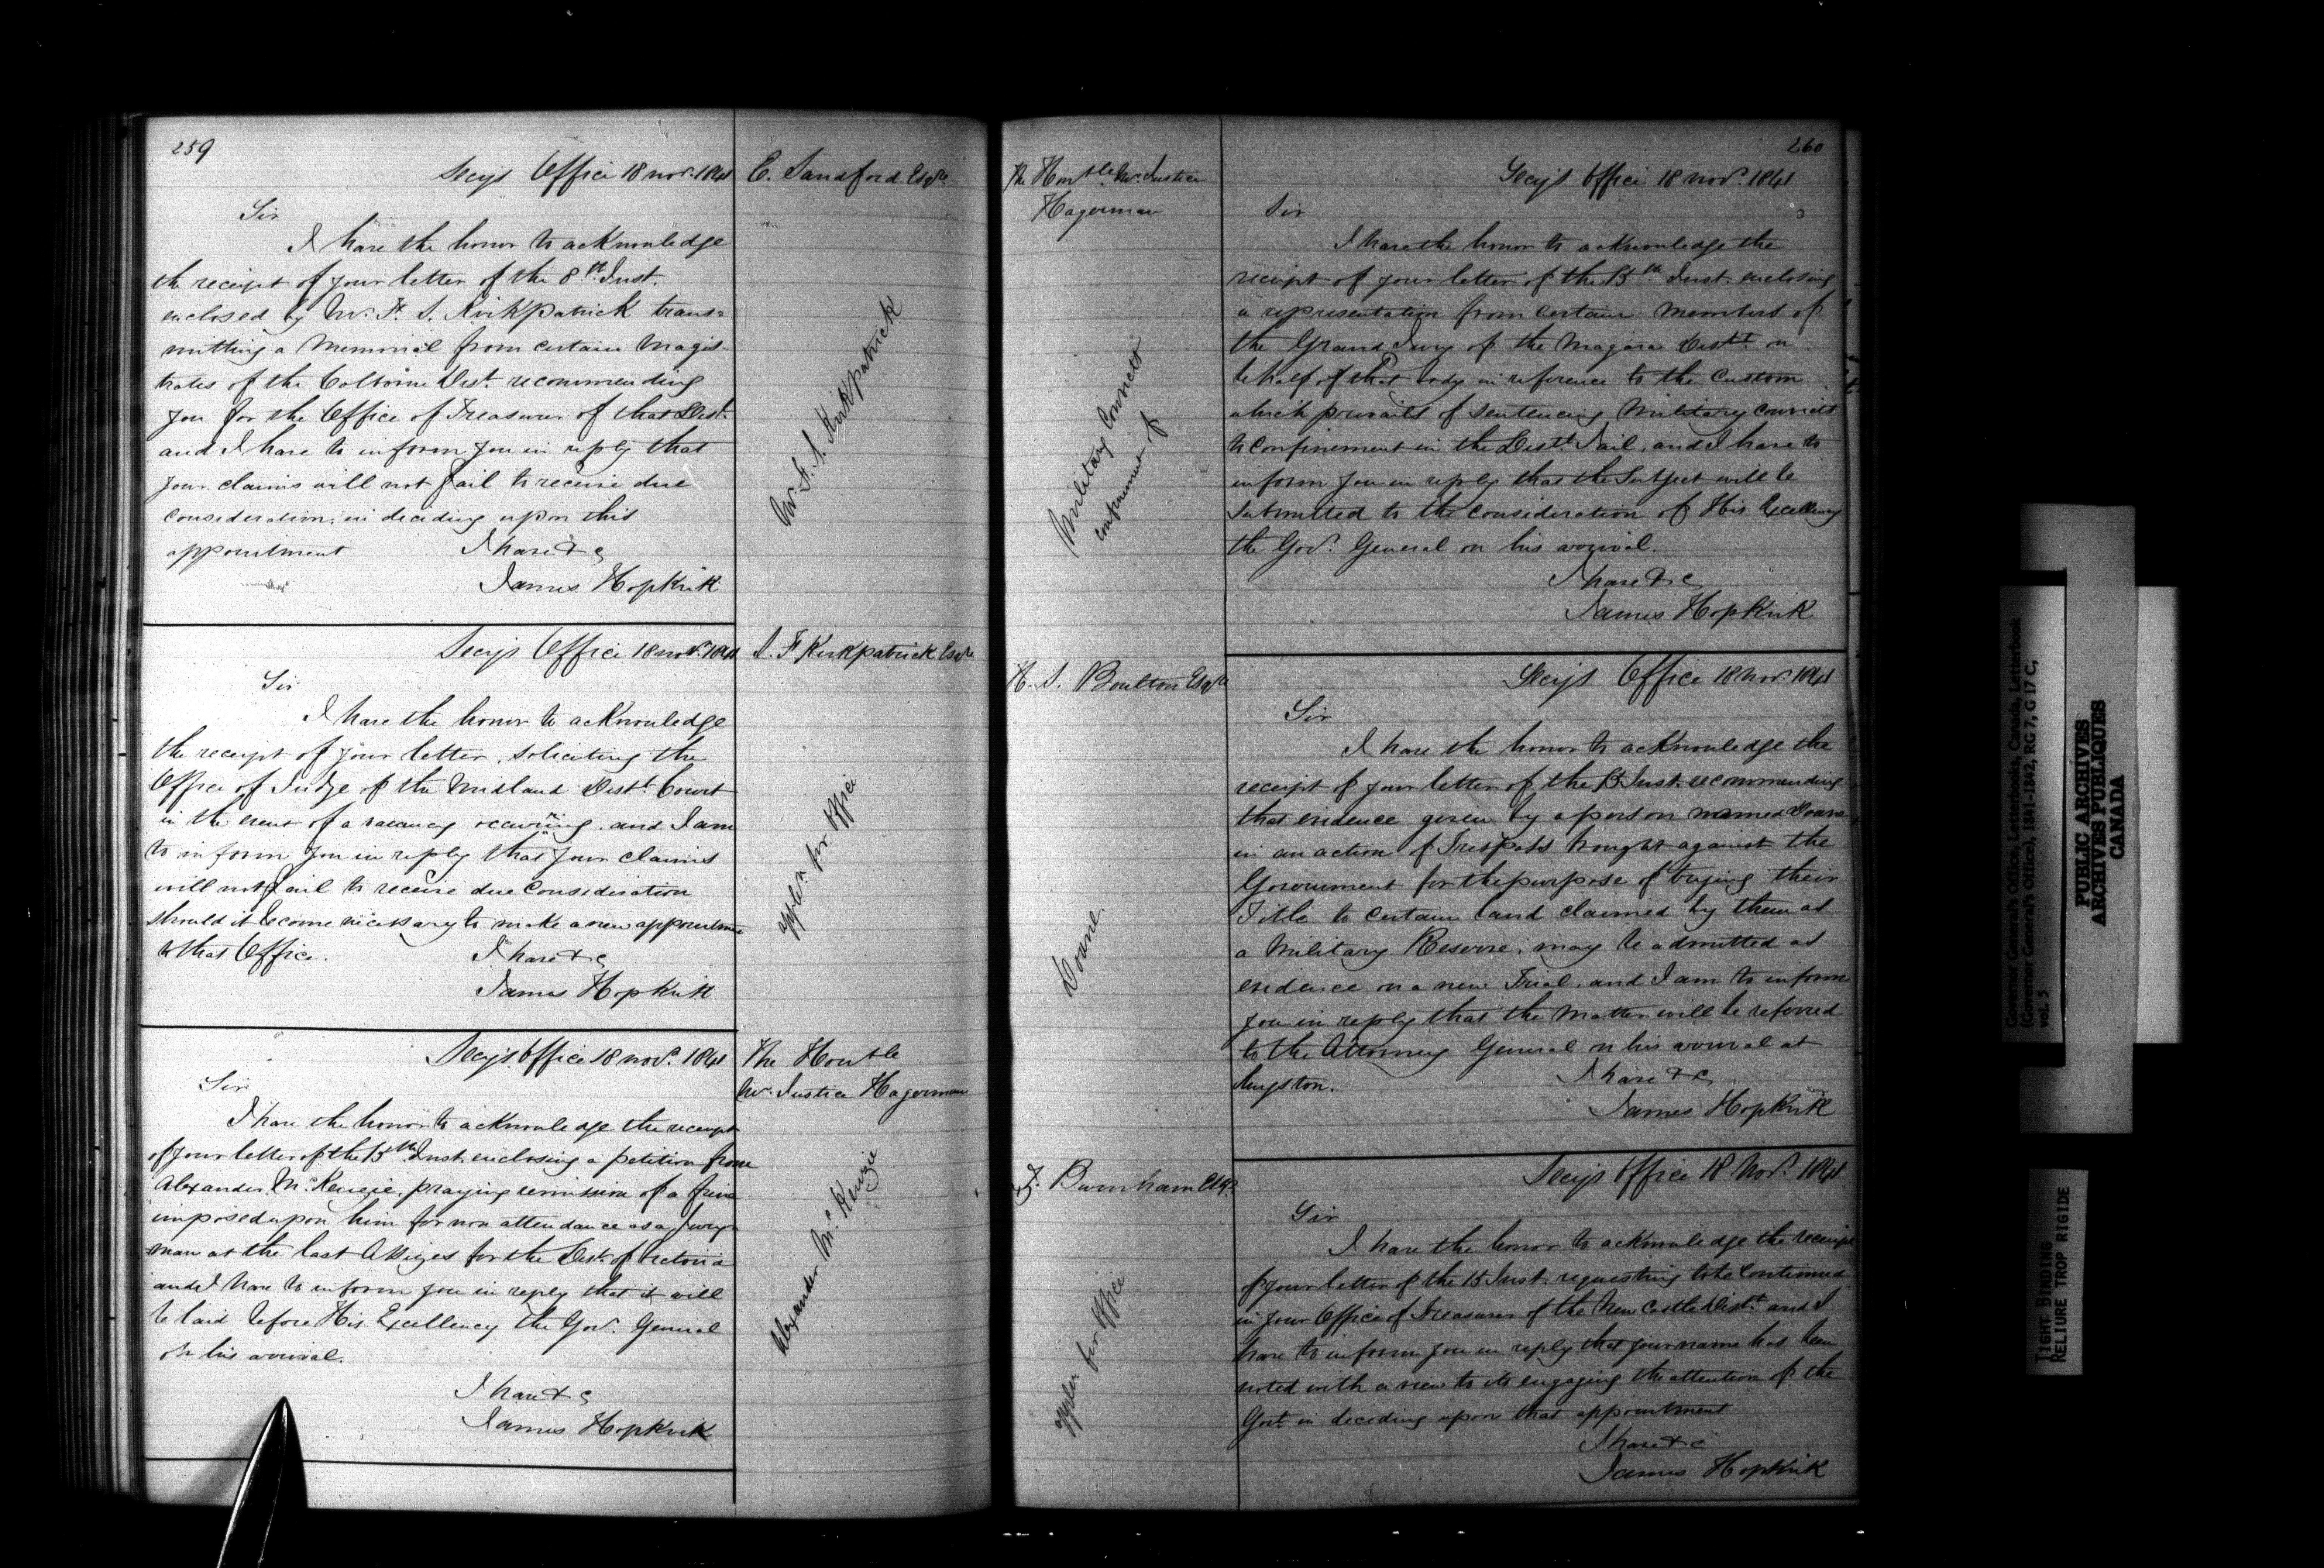 259
Secys Office 18 Novr. 1841
E. Sandford Esqre
Sir
I have the honor to acknowledge
the receipt of your letter of the 8th Inst.
enclosed by Mr. F. S. Kirkpatrick trans=
mitting a Memorial from certain Magis-
trates of the Colborne Dist. recommending
you for the Office of Treasurer of that Dist.
and I have to inform you in reply that
your claims will not fail to receive due
consideration, in deciding upon this
appointment
I have &c
James Hopkirk
Mr. F. S. Kirkpatrick
Secys Office 18 Novr. 1841
S. F Kirkpatrick Esqre
Sir
I have the honor to acknowledge
the receipt of your letter, soliciting the
Office of Judge of the Midland Distt. Court
in the event of a vacancy occurring, and I am
to inform you in reply that your claims
will not fail to receive due consideration
should it become necessary to make a new appointme
to that Office.
I have &c
James Hopkirk
appln for Office
Secys Office 18 Novr. 1841
The Honble
Mr. Justice Hagerman
Sir
I have the honor to acknowledge the receipt
of your letter of the 15th Inst. enclosing a petition from
Alexander McKenzie, praying remission of a fine
imposed upon him for non attendance as a Jury-
man at the last Assizes for the Dist. of Victoria
and I have to inform you in reply that it will
be laid before His Excellency the Govr. General
on his arrival.
I have &c
James Hopkirk
Alexander McKenzie
260
The Honble. Mr. Justice
Hagerman
Secys Office 18 Novr. 1841
Sir
I have the honor to acknowledge the
receipt of your letter of the 15th Inst. enclosing
a representation from certain members of
the Grand Jury of the Niagara Distt. on
behalf of that body in reference to the custom
which prevails of sentencing Military convicts
to confinement in the Distt. Jail, and I have to
inform you in reply that the Subject will be
submitted to the consideration of His Excellency
the Govr. General on his arrival.
I have &c
James Hopkirk
Military Convicts
confinement of
H. S. Boulton Esqre
Secys Office 18 Novr. 1841
Sir
I have the honor to acknowledge the
receipt of your letter of the 15 Inst. recommending
that evidence given by a person named Doane
in an action of Trespass brought against the
Government for the purpose of trying their
Title to certain land claimed by them as
a Military Reserve, may be admitted as
evidence on a new Trial, and I am to inform
you in reply that the matter will be referred
to the Attorney General on his arrival at
Kingston.
I have &c
James Hopkirk
Doane
Burnham Esqr.
Secys Office 18 Novr. 1841
Sir
I have the honor to acknowledge the receipt
of your letter of the 15 Inst. requesting to be continued
in your Office of Treasurer of the New Castle Distt. and I
have to inform you in reply that your name has been
noted with a view to its engaging the attention of the
Govt. in deciding upon that appointment
I have &c
James Hopkirk
appln for Office
Governor General's Office, Letterbooks, Canada, Letterbook
(Governor General's Office), 1841-1842, RG 7, G 17 C,
vol. 5
PUBLIC ARCHIVES
ARCHIVES PUBLIQUES
CANADA
TIGHT BINDING
RELIURE TROP RIGIDE